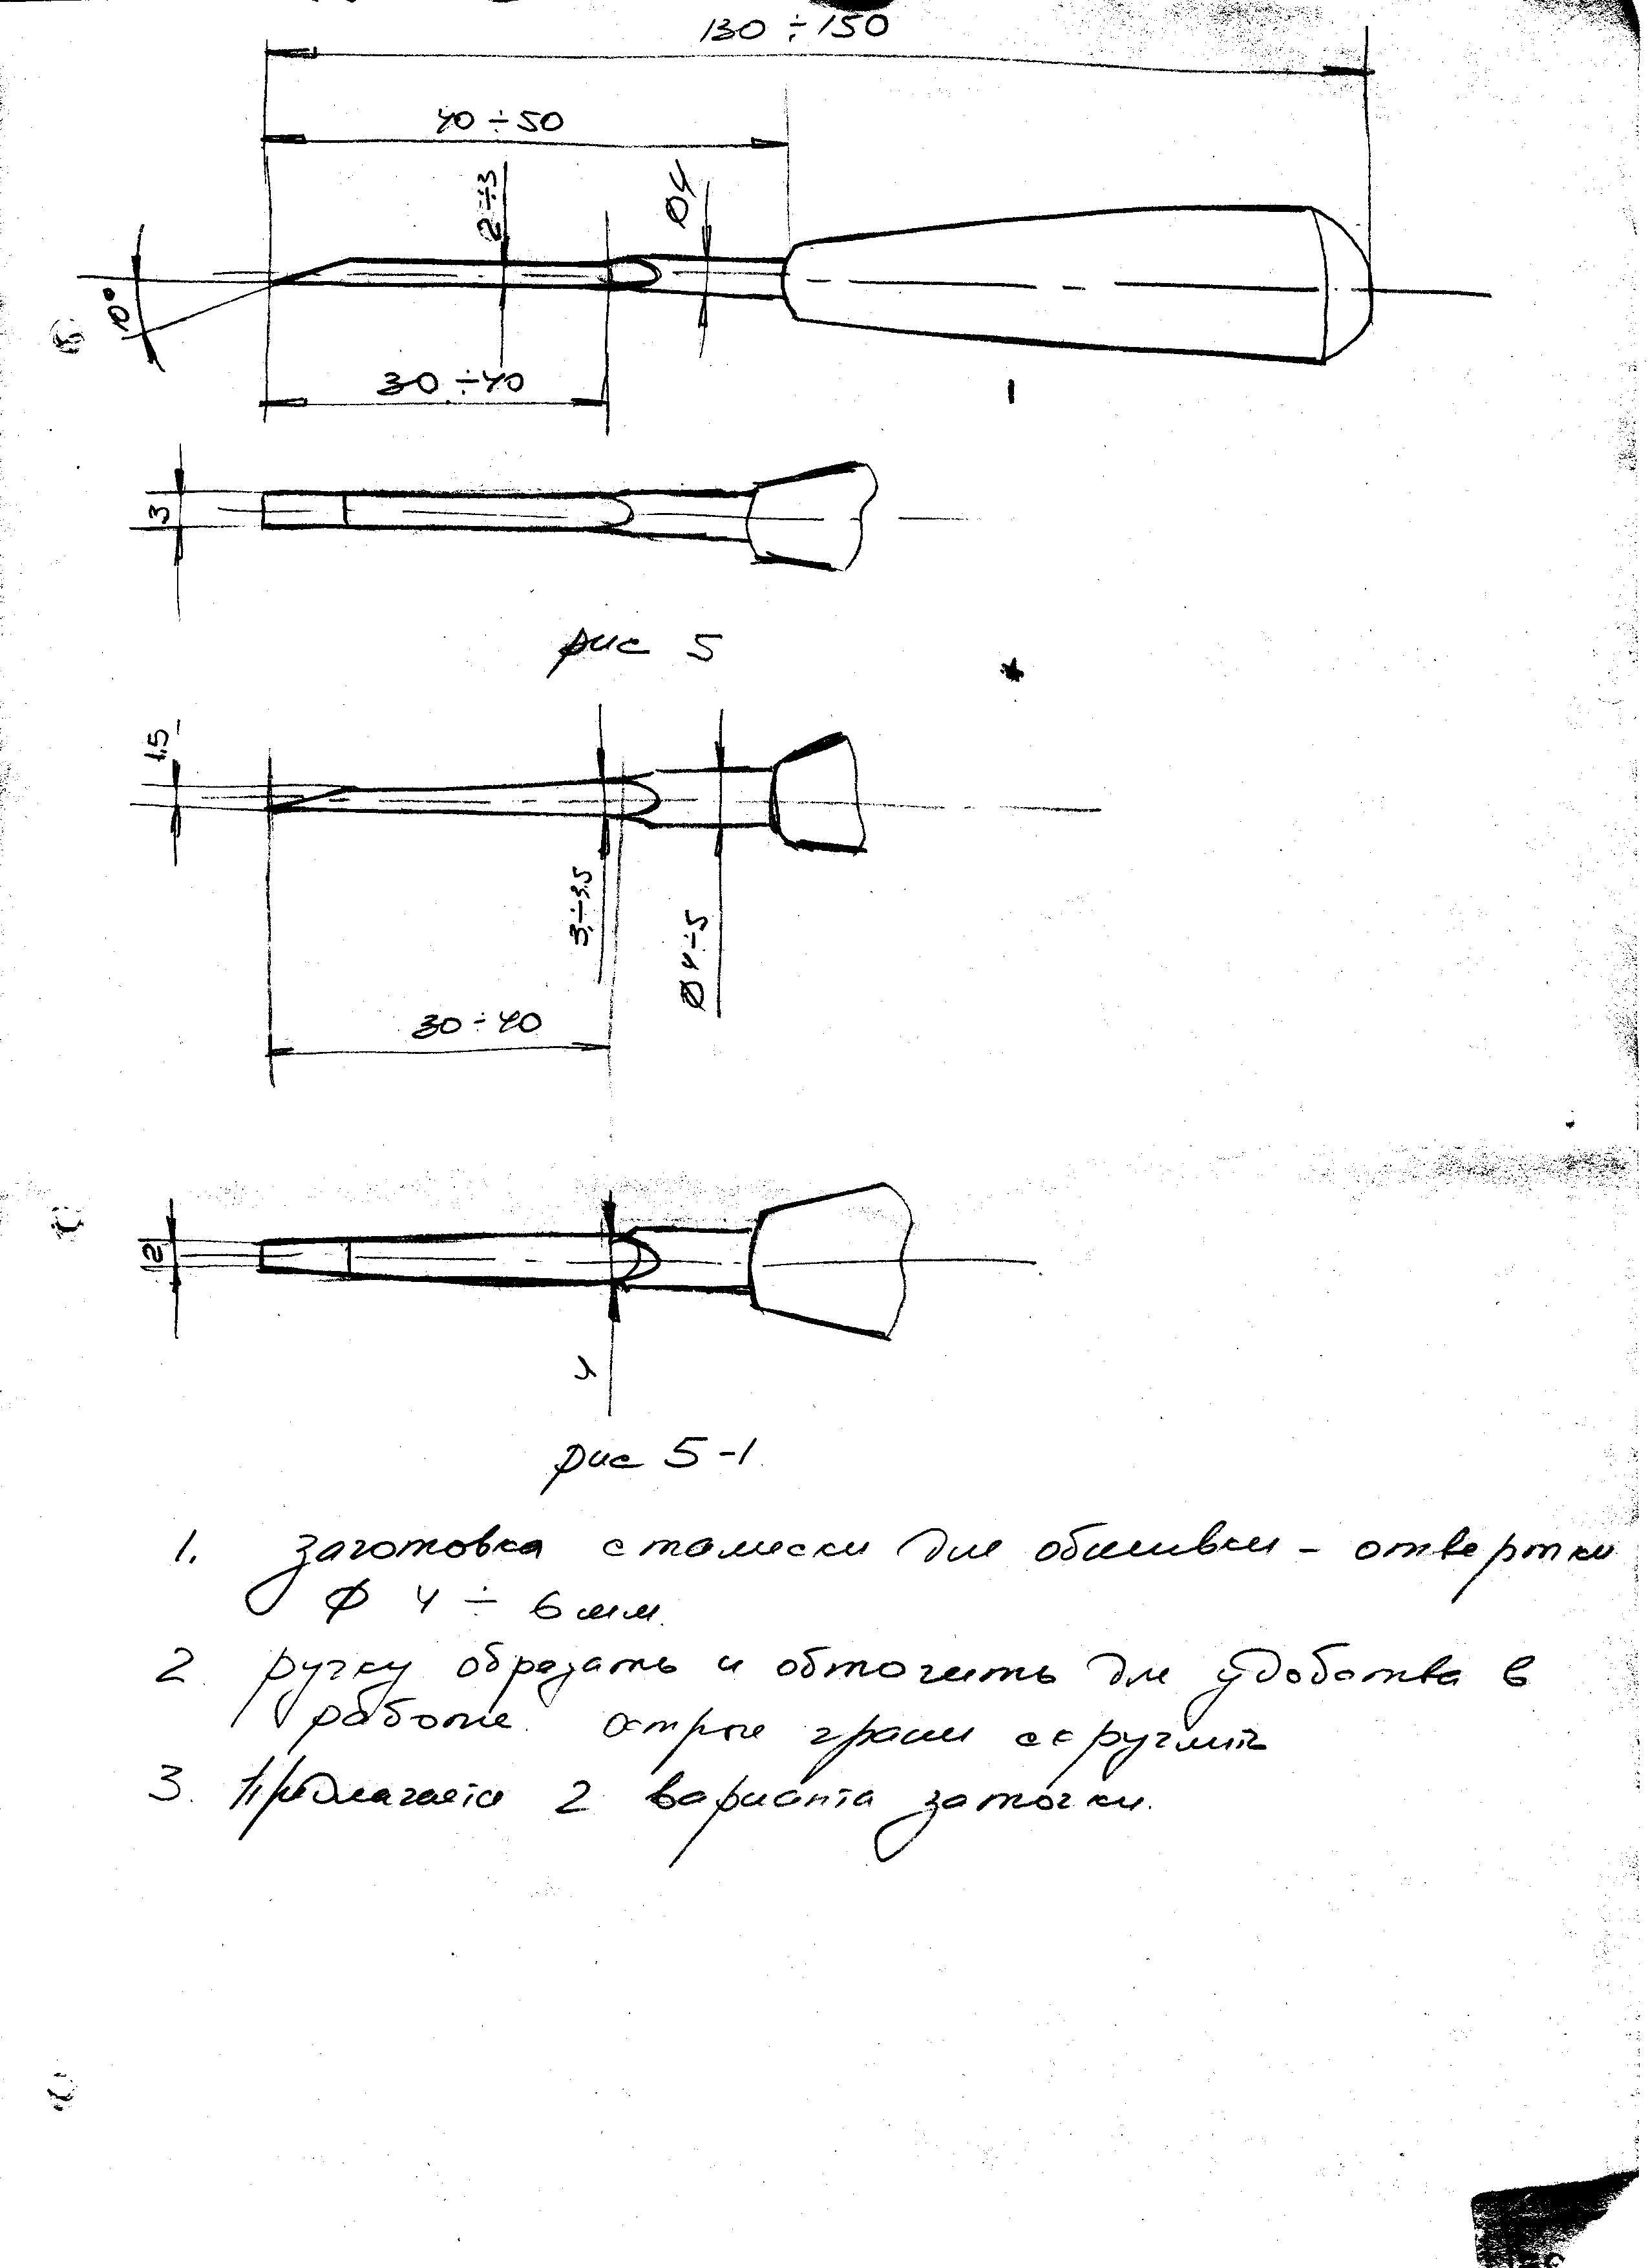 130 ÷ 150
40 ÷ 50
2 ÷ 3
Ø4
10°
30 ÷ 40
3
рис 5
1.5
3 ÷ 3.5
Ø 4 ÷ 5
30 ÷ 40
2
4
рис 5-1
1. заготовка стамески для обшивки - отвертки
Ø 4 ÷ 6 мм.
2. ручку обрезать и обточить для удобства в
работе. Острые грани скруглить
3. Предлагается 2 варианта заточки.